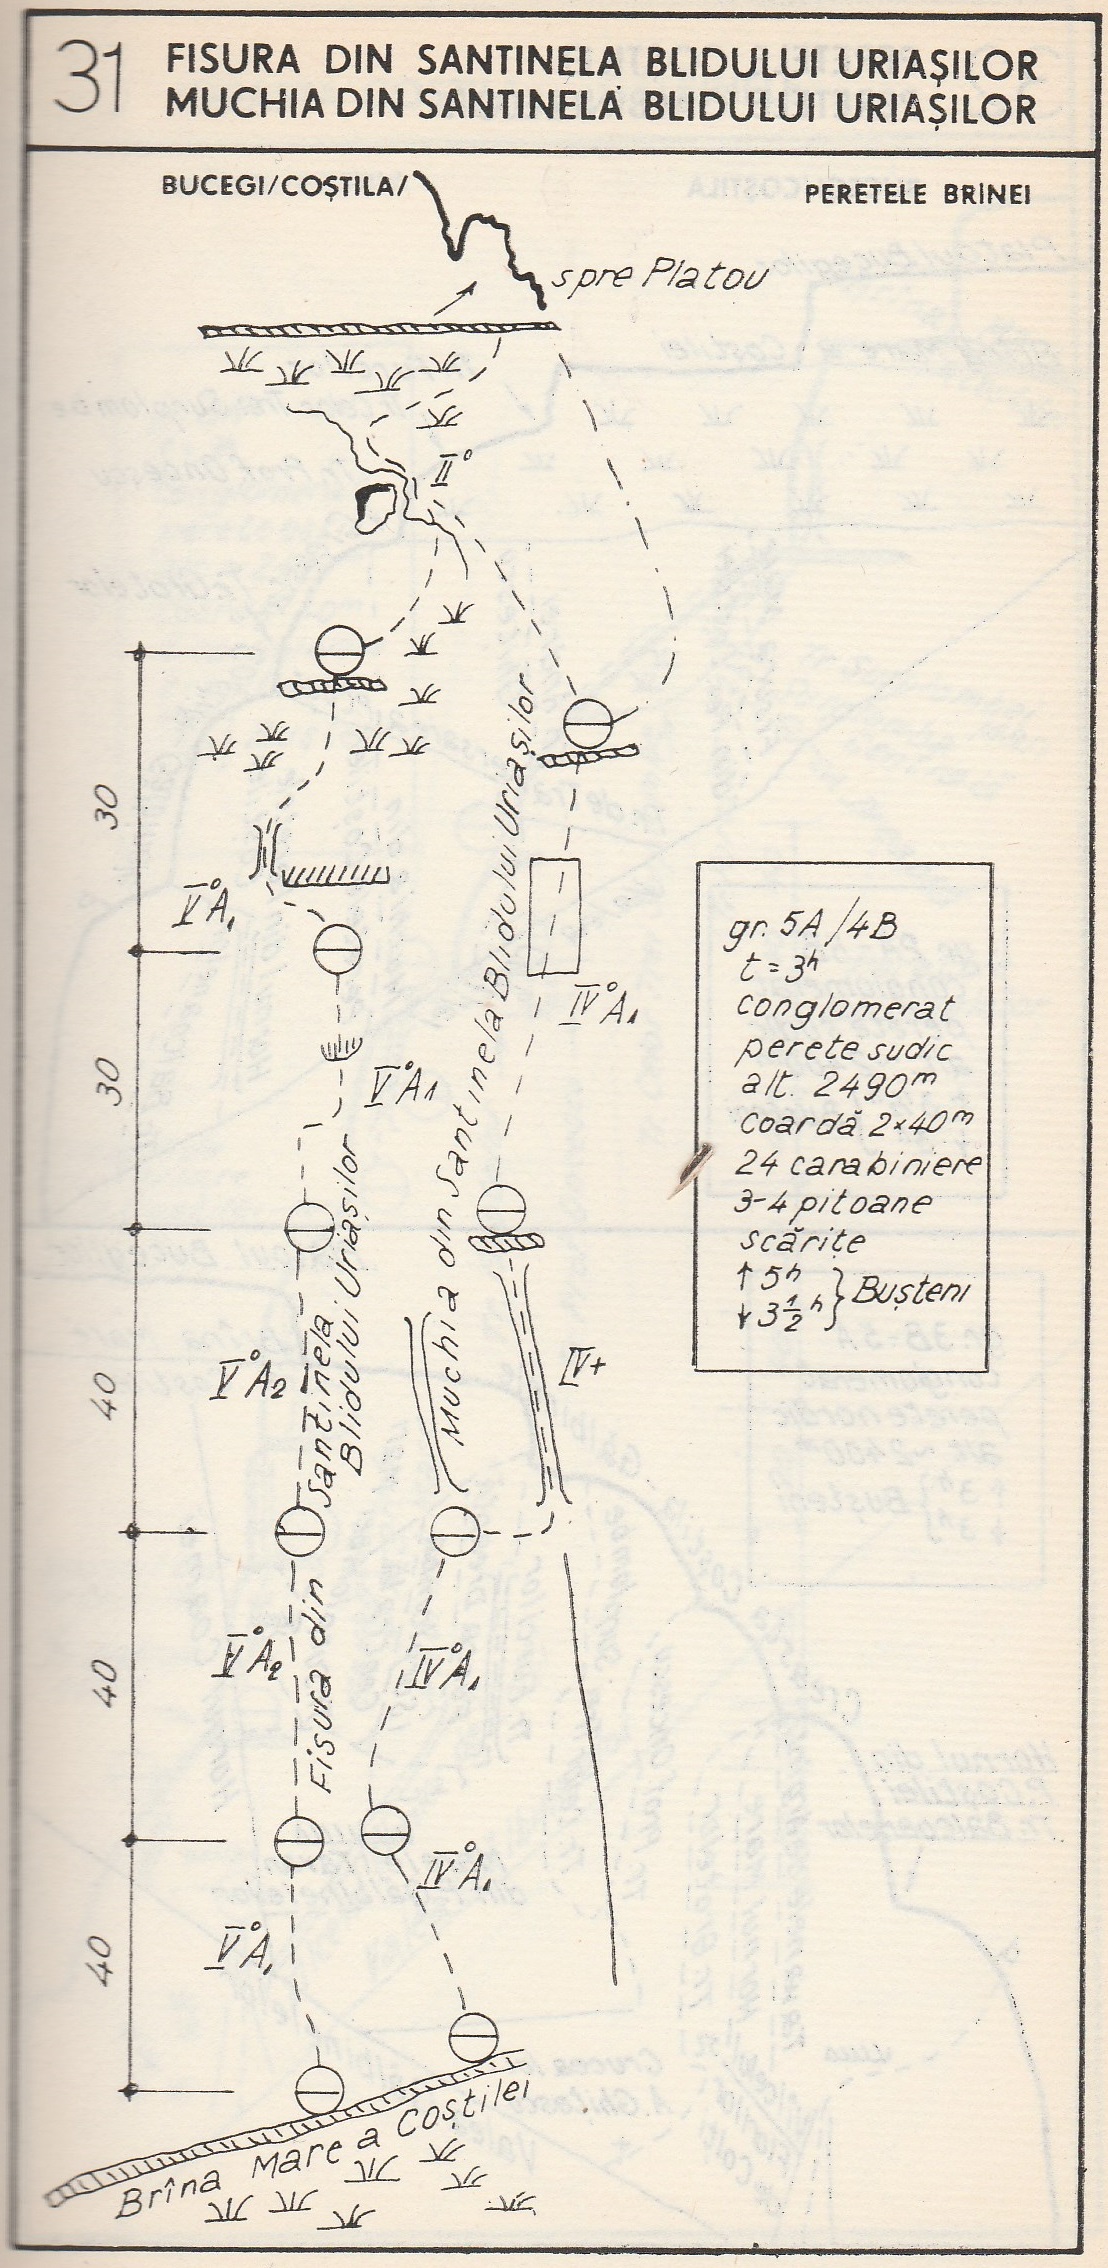 31
FISURA DIN SANTINELA BLIDULUI URIAȘILOR
MUCHIA DIN SANTINELA BLIDULUI URIAȘILOR
BUCEGI/COȘTILA/
PERETELE BRÎNEI
spre Platou
II°
30
V°A1
IV°A1
30
V°A1
Muchia din Santinela Blidului Uriașilor
gr. 5A/4B
t = 3h
conglomerat
perete sudic
alt. 2490m
coardă 2×40m
24 carabiniere
3-4 pitoane
scărițe
↑ 5h
↓ 3 1/2 h } Bușteni
40
V°A2
IV+
Fisura din Santinela
Blidului Uriașilor
40
V°A2
IV°A1
IV°A1
40
V°A1
Brîna Mare a Coștilei